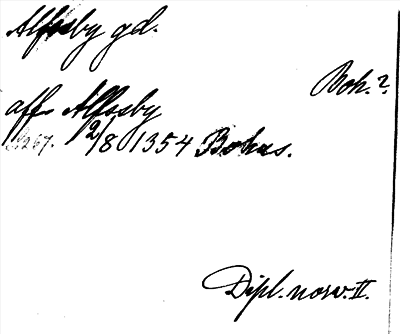 Alfsby gd.
Boh.?
aff Alfsby
267. 2/8 1354 Bohus.
Dipl. norv. II.